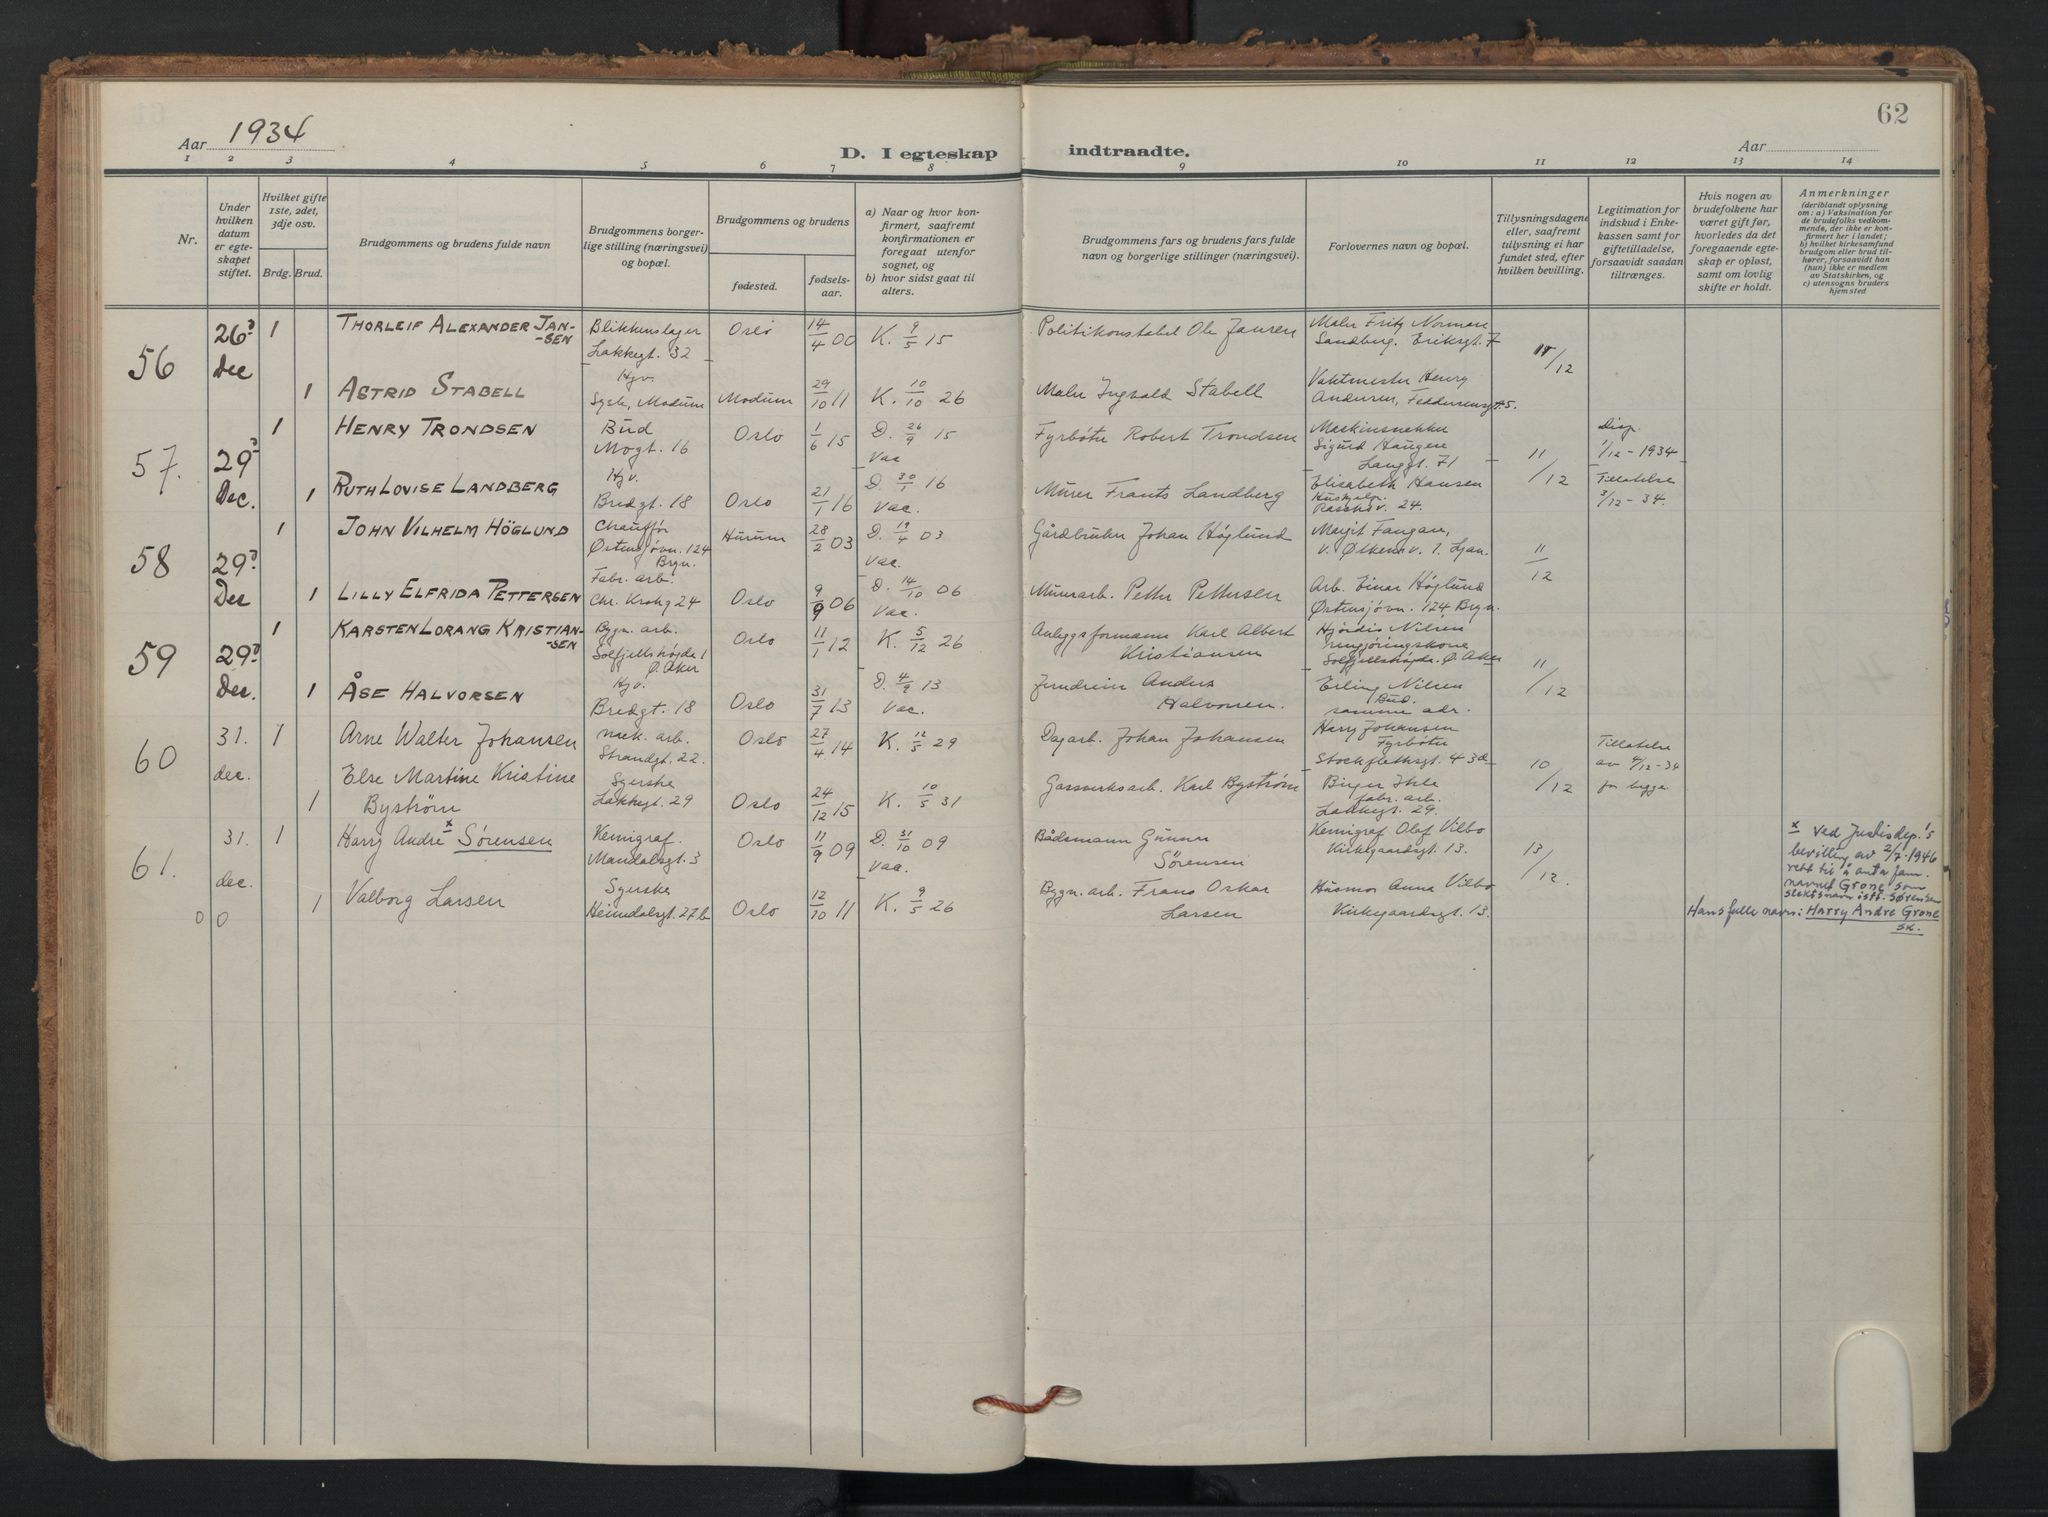 62
Aar 1934
D. I egteskap indtraadte.
Aar
1 2 3 4 5 6 7 8 9 10 11 12 13 14
Nr.
Under hvilken datum er egteskapet stiftet.
Hvilket gifte 1ste, 2det, 3dje osv.
Brdg. Brud.
Brudgommens og brudens fulde navn
Brudgommens borgerlige stilling (næringsvei) og bopæl.
Brudgommens og brudens
fødested.
fødselsaar.
a) Naar og hvor konfirmert, saafremt konfirmationen er foregaat utenfor sognet, og
b) hvor sidst gaat til alters.
Brudgommens fars og brudens fars fulde navn og borgerlige stillinger (næringsvei).
Forlovernes navn og bopæl.
Tillysningsdagene eller, saafremt tillysning ei har fundet sted, efter hvilken bevilling.
Legitimation for indskud i Enkekassen samt for giftetilladelse, forsaavidt saadan tiltrænges.
Hvis nogen av brudefolkene har været gift før, hvorledes da det foregaaende egteskap er opløst, samt om lovlig skifte er holdt.
Anmerkninger
(deriblandt oplysning om: a) Vaksination for de brudefolks vedkommende, der ikke er konfirmert her i landet; b) hvilket kirkesamfund brudgom eller brud tilhører, forsaavidt han (hun) ikke er medlem av Statskirken, og c) utensogns bruders hjemsted
56 26 Dec 1 THORLEIF ALEXANDER JAN-SEN Blikkenslager Lakkegt. 32 Oslo 14/4 00 K. 9/5 15 Politikonstabel Ole Jansen Maler Fritz Norman Sandberg. Eriksgt. 7 /12
1 ASTRID STABELL Hgv. Modum Modum 29/10 11 K. 10/10 26 Maler Ingvald Stabell Vaktmester Henry Andersen, Feddersensgt. 5.
57. 29 Dec. 1 HENRY TRONDSEN Bud Mogt. 16 Oslo 1/6 15 D. 26/9 15 Vac Fyrbøter Robert Trondsen Maskinsnekker Sigurd Haugen Langgt. 71 11/12 Disp. 1/12-1934
1 RUTH LOVISE LANDBERG Hgv. Bredgt. 18 Oslo 21/1 16 D. 30/1 16 Vac. Murer Frants Landberg Elisabeth Hansen Hushjelp. 24. Tillatelse 3/12-34.
58 29 Dec 1 JOHN VILHELM HÖGLUND Chauffør Østensjøvn. 124 Bryn. Hurum 28/2 03 D. 19/4 03 Vac. Gårdbruker Johan Høglund Margit Fangan, 11/12
1 LILLY ELFRIDA PETTERSEN Fabr. arb. Chr. Krohg 24 Oslo 9/9 06 D. 14/10 06 Vac. Murarb. Petter Pettersen Arb. Einar Høglund Østensjøvn. 124 Bryn.
59 29 Dec. 1 KARSTEN LORANG KRISTIAN-SEN Bygn. arb. Solfjellshøgda 1 Ø. Aker Oslo 11/1 12 K. 5/12 26 Anleggsformann Karl Albert Kristiansen Hjørdis Nilsen rengjøringskone Solfjellshøgda. Ø. Aker 11/12
1 ÅSE HALVORSEN Hgv. Bredgt. 18 Oslo 31/7 13 D. 4/9 13 Vac. Jerndreier Anders Halvorsen. Erling Nilsen Bud. samme adr.
60 31. dec. 1 Arne Walter Johansen mek. arb. Strandgt. 22. Oslo 27/4 14 K. 12/5 29 Dagarb. Johan Johansen Harry Johansen Fyrbøter Stockflethsgt. 43 d 10/12 Tillatelse av 4/12-34 for begge
1 Else Martine Kristine Bystrøm Syerske Lakkegt. 29 Oslo 24/12 15 K. 10/5 31 Gassverksarb. Karl Bystrøm Birger Ihle fabr. arb. Lakkegt. 29.
61. 31. dec. 1 Harry André x Sørensen Kemigraf. Mandalsgt. 3 Oslo 11/9 09 D. 31/10 09 Vac. Bådsmann Gunnar Sørensen Kemigraf Olaf Vilbo Kirkegaardsgt. 13. 13/12.
1 Valborg Larsen Syerske Heimdalsgt. 27b Oslo 12/10 11 K. 9/5 26 Bygn. arb. Frans Oskar Larsen Husmor Anna Vilbo Kirkegaardsgt. 13.
0 0
x Ved Justisdep.'s
bevilling av 2/7-1946
rett til å anta fam.
navnet Grone som
slektsnavn istf. Sørensen
Hans fulle navn: Harry Andre Grone
sk.